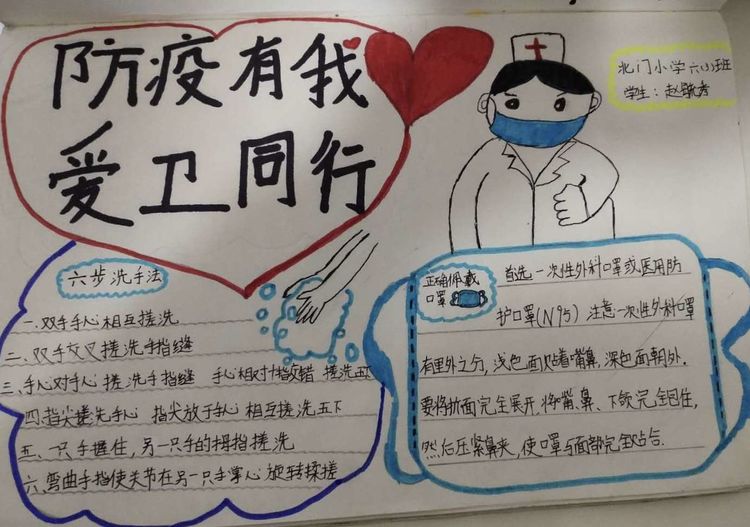 防疫有我
爱卫同行
北门小学六(3)班
学生：赵
六步洗手法
一.双手手心相互搓洗
二、双手交叉搓洗手指缝
三、手心对手心 搓洗手指缝 手心相对十指交错 搓洗五下
四.指尖搓洗手心 指尖放于手心相互搓洗五下
五、一只手握住,另一只手的拇指搓洗
六、弯曲手指使关节在另一只手掌心旋转揉搓
正确佩戴
口罩
首选一次性外科口罩或医用防
护口罩(N95) 注意一次性外科口罩
有里外之分,浅色面贴着嘴鼻,深色面朝外.
要将折面完全展开,将嘴、鼻、下颌完全包住,
然后压紧鼻夹,使口罩与面部完全贴合.